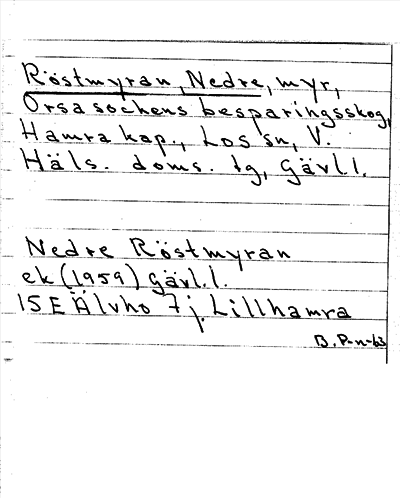 Röstmyran, Nedre, myr,
Orsa sockens besparingsskog,
Hamra kap., Los sn, V.
Häls. doms. tg, Gävl.l.
Nedre Röstmyran
ek (1959) Gävl.l.
15E Älvho 7j. Lillhamra
B. P-n-63